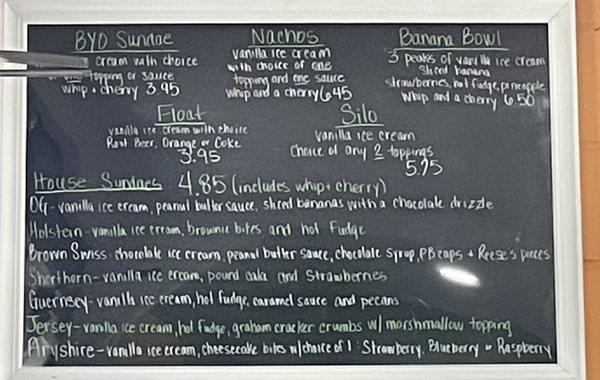 BYO Sundae
cream with choice
of one topping or sauce
whip + cherry 3.95
Nachos
vanilla ice cream
with choice of one
topping and one sauce
whip and a cherry 6.45
Banana Bowl
3 peaks of vanilla ice cream
sliced banana
strawberries, hot fudge, pineapple
whip and a cherry 6.50
Float
vanilla ice cream with choice
Root Beer, Orange or Coke
3.95
Silo
vanilla ice cream
choice of any 2 toppings
5.75
House Sundaes 4.85 (includes whip + cherry)
OG - vanilla ice cream, peanut butter sauce, sliced bananas with a chocolate drizzle
Holstein - vanilla ice cream, brownie bites and hot fudge
Brown Swiss - chocolate ice cream, peanut butter sauce, chocolate syrup, PB cups + Reese's pieces
Shorthorn - vanilla ice cream, pound cake and strawberries
Guernsey - vanilla ice cream, hot fudge, caramel sauce and pecans
Jersey - vanilla ice cream, hot fudge, graham cracker crumbs w/ marshmallow topping
Aryshire - vanilla ice cream, cheesecake bites w/choice of 1: Strawberry, Blueberry or Raspberry